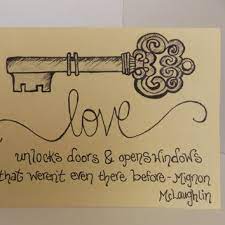 love
unlocks doors & opens windows
that weren't even there before - Mignon
McLaughlin